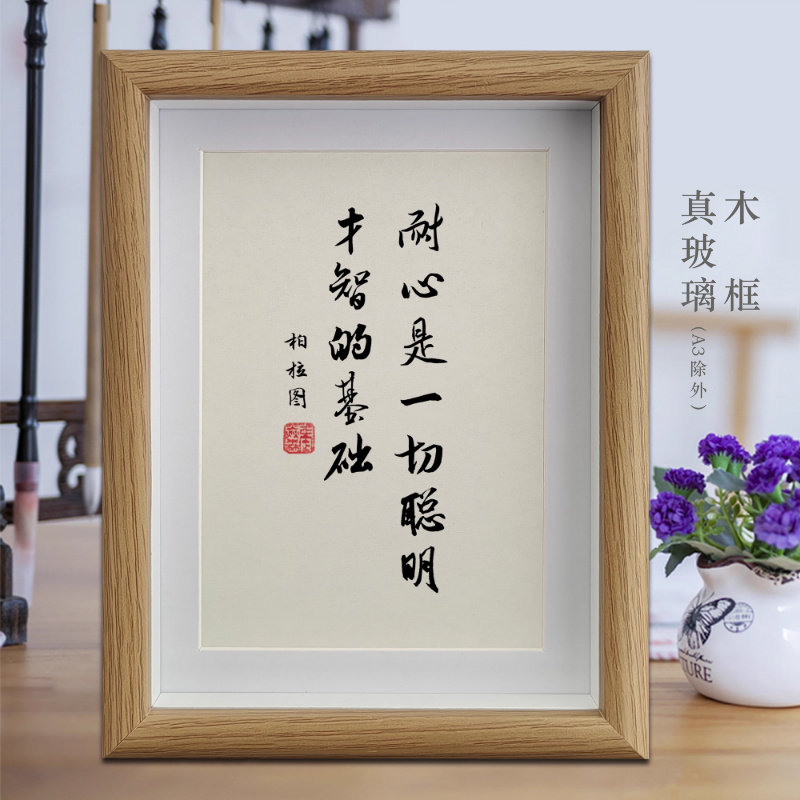 耐心是一切聪明
才智的基础
柏拉图
木框
真玻璃(A3除外)
TURE